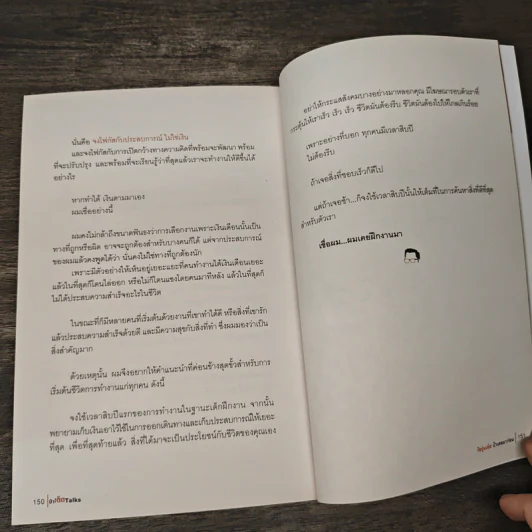 นั่นคือ จงโฟกัสกับประสบการณ์ ไม่ใช่เงิน
และจงโฟกัสกับการเปิดกว้างทางความคิดที่พร้อมจะพัฒนา พร้อม
ที่จะปรับปรุง และพร้อมที่จะเรียนรู้ว่าที่สุดแล้วเราจะทำงานให้ดีขึ้นได้
อย่างไร
หากทำได้ เงินตามมาเอง
ผมเชื่ออย่างนี้
ผมคงไม่กล้าถึงขนาดฟันธงว่าการเลือกงานเพราะเงินเดือนนั้นเป็น
ทางที่ถูกหรือผิด อาจจะถูกต้องสำหรับบางคนก็ได้ แต่จากประสบการณ์
ของผมแล้วคงพูดได้ว่า นั่นคงไม่ใช่ทางที่ถูกต้องนัก
เพราะมีตัวอย่างให้เห็นอยู่เยอะแยะที่คนทำงานได้เงินเดือนเยอะ
แล้วในที่สุดก็โดนไล่ออก หรือไม่ก็โดนแซงโดยคนมาทีหลัง แล้วในที่สุดก็
ไม่ได้ประสบความสำเร็จอะไรในชีวิต
ในขณะที่ก็มีหลายคนที่เริ่มต้นด้วยงานที่เขาทำได้ดี หรือสิ่งที่เขารัก
แล้วประสบความสำเร็จด้วยดี และมีความสุขกับสิ่งที่ทำ ซึ่งผมมองว่าเป็น
สิ่งสำคัญมาก
ด้วยเหตุนั้น ผมจึงอยากให้คำแนะนำที่ค่อนข้างสุดขั้วสำหรับการ
เริ่มต้นชีวิตการทำงานแก่ทุกคน ดังนี้
จงใช้เวลาสิบปีแรกของการทำงานในฐานะเด็กฝึกงาน จากนั้น
พยายามเก็บเงินเอาไว้ใช้ในการออกเดินทางและเก็บประสบการณ์ให้เยอะ
ที่สุด เพื่อที่สุดท้ายแล้ว สิ่งที่ได้มาจะเป็นประโยชน์กับชีวิตของคุณเอง
150 Talks
อย่าให้กระแสสังคมบางอย่างมาหลอกคุณ มีโฆษณารอบตัวเราที่
กระตุ้นให้เราเร็ว เร็ว เร็ว ชีวิตมันต้องรีบ ชีวิตมันต้องไปให้ไกลเกินร้อย
เพราะอย่างที่บอก ทุกคนมีเวลาสิบปี
ไม่ต้องรีบ
ถ้าเจอสิ่งที่ชอบเร็วก็ดีไป
แต่ถ้าเจอช้า...ก็จงใช้เวลาสิบปีนั้นให้เต็มที่ในการค้นหาสิ่งที่ดีที่สุด
สำหรับตัวเรา
เชื่อผม...ผมเคยฝึกงานมา
151